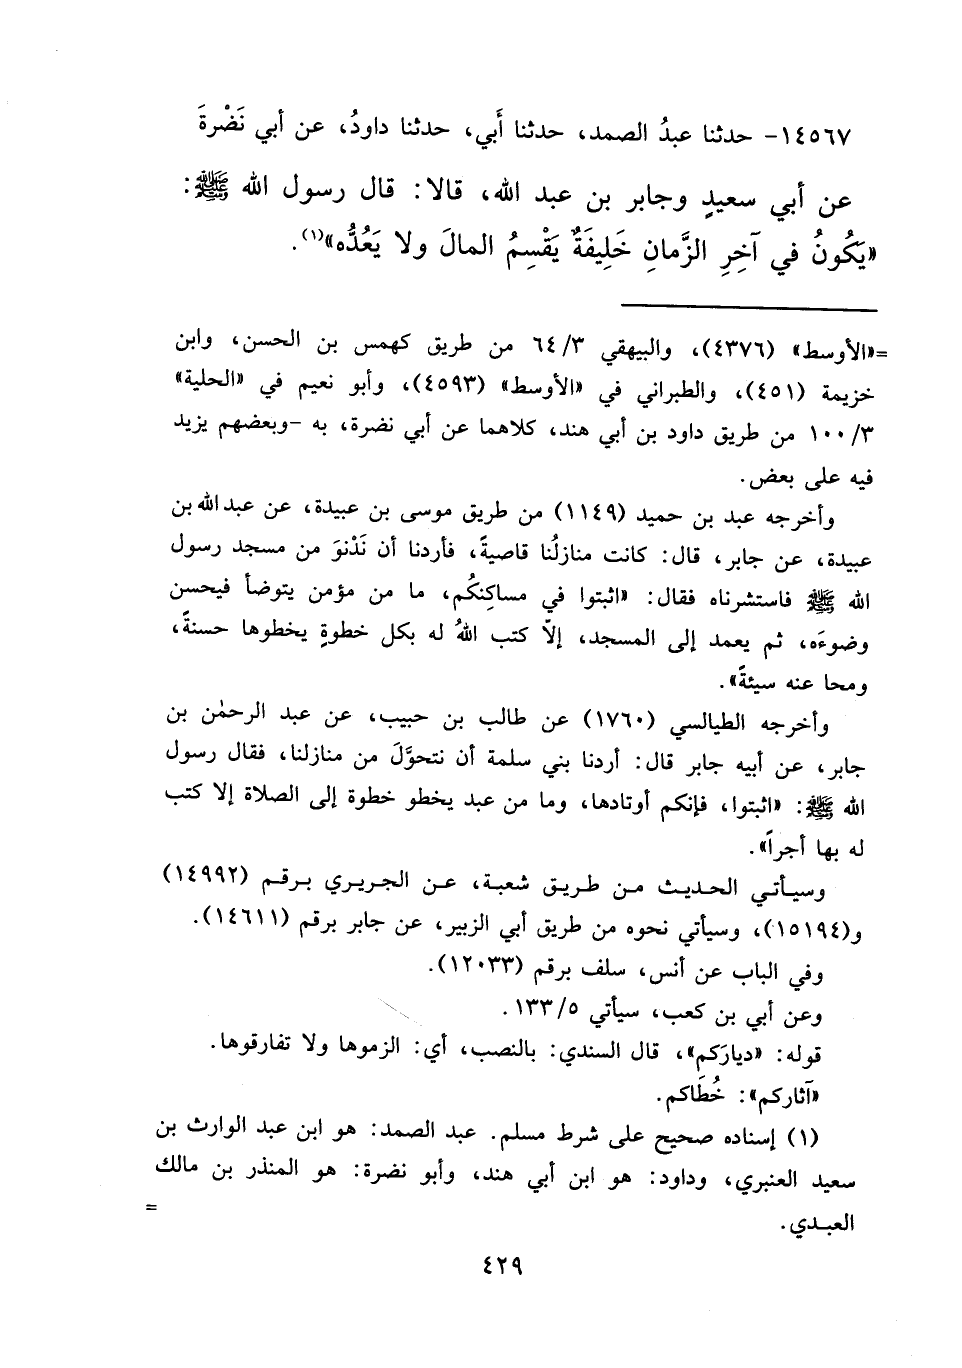 ١٤٥٦٧- حدثنا عبدُ الصمد، حدثنا أَبي، حدثنا داودُ، عن أبي نَضْرةَ
عن أبي سعيدٍ وجابر بن عبد الله، قالا: قال رسول الله ﷺ:
«يَكُونُ في آخِرِ الزَّمانِ خَلِيفَةٌ يَقْسِمُ المالَ ولا يَعُدُّه»(١).
=«الأوسط» (٤٣٧٦)، والبيهقي ٦٤/٣ من طريق كهمس بن الحسن، وابن
خزيمة (٤٥١)، والطبراني في «الأوسط» (٤٥٩٣)، وأبو نعيم في «الحلية»
١٠٠/٣ من طريق داود بن أبي هند، كلاهما عن أبي نضرة، به -وبعضهم يزيد
فيه على بعض.
وأخرجه عبد بن حميد (١١٤٩) من طريق موسى بن عبيدة، عن عبد الله بن
عبيدة، عن جابر، قال: كانت منازلُنا قاصيةً، فأردنا أن نَدْنوَ من مسجد رسول
الله ﷺ فاستشرناه فقال: «اثبتوا في مساكِنكُم، ما من مؤمن يتوضأ فيحسن
وضوءَه، ثم يعمد إلى المسجد، إلاّ كتب اللهُ له بكل خطوةٍ يخطوها حسنةً،
ومحا عنه سيئةً».
وأخرجه الطيالسي (١٧٦٠) عن طالب بن حبيب، عن عبد الرحمٰن بن
جابر، عن أبيه جابر قال: أردنا بني سلمة أن نتحوَّلَ من منازلنا، فقال رسول
الله ﷺ: «اثبتوا، فإنكم أوتادها، وما من عبد يخطو خطوة إلى الصلاة إلا كتب
له بها أجراً».
وسيأتي الحديث من طريق شعبة، عن الجريري برقم (١٤٩٩٢)
و(١٥١٩٤)، وسيأتي نحوه من طريق أبي الزبير، عن جابر برقم (١٤٦١١).
وفي الباب عن أنس، سلف برقم (١٢٠٣٣).
وعن أبي بن كعب، سيأتي ١٣٣/٥.
قوله: «ديارَكم»، قال السندي: بالنصب، أي: الزموها ولا تفارقوها.
«آثاركم»: خُطَاكم.
(١) إسناده صحيح على شرط مسلم. عبد الصمد: هو ابن عبد الوارث بن
سعيد العنبري، وداود: هو ابن أبي هند، وأبو نضرة: هو المنذر بن مالك
العبدي. =
٤٢٩